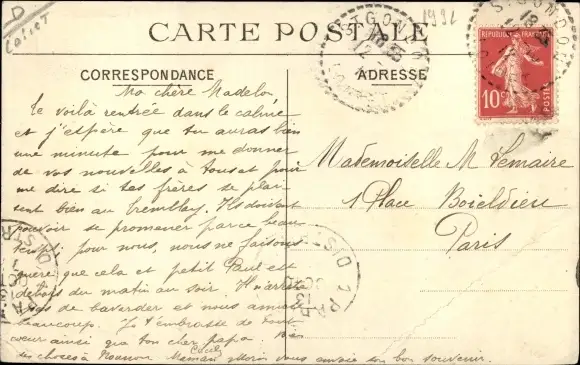 CARTE POSTALE
CORRESPONDANCE
ADRESSE
REPUBLIQUE FRANÇAISE
10c
POSTES
Ma chère Madelon
Te voilà rentrée dans le calme
et j'espère que tu auras bien
une minute pour me donner
de vos nouvelles à tous et pour
me dire si tes frères se plai-
sent bien au Tremblay. Ils doivent
pouvoir se promener parce beau
temps! pour nous, nous ne faisons
guère que cela et petit Paul est
dehors du matin au soir. Il n'arrête
pas de bavarder et nous amuse
beaucoup. Je t'embrasse de tout
cœur ainsi que ton cher papa.
des choses à Nounou. Maman vous envoie son bon souvenir.
Mademoiselle M Lemaire
1 Place Boieldieu
Paris